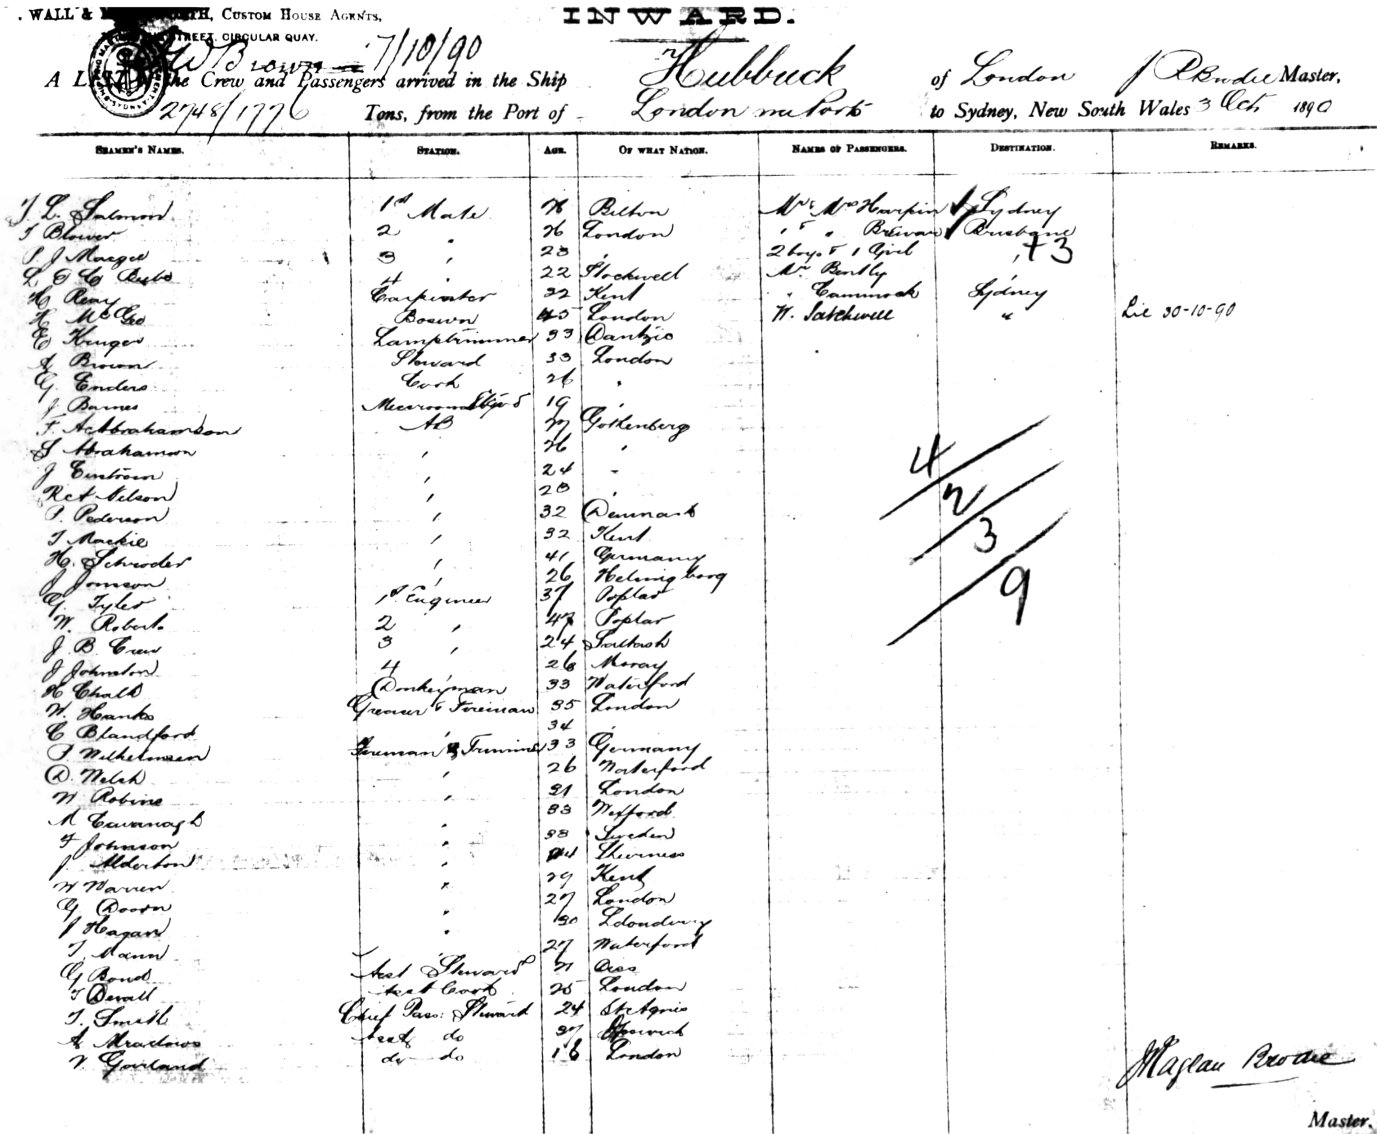 WALL & CUSTOM HOUSE AGENTS,
INWARD.
STREET, CIRCULAR QUAY.
W Brown 7/10/90
A LIST of the Crew and Passengers arrived in the Ship Hubbuck of London J R Brodie Master,
2748/1776 Tons, from the Port of London via Ports to Sydney, New South Wales 3 Oct 1890
SEAMEN'S NAMES. STATION. AGE. OF WHAT NATION. NAMES OF PASSENGERS. DESTINATION. REMARKS.
Salmon 1st Mate Mr & Mrs Sydney
T Blower 2 " 26 London " & " Brewan Brisbane
P J Magee 3 " 23 " 2 boys & 1 Girl " +3
4 " 22 Stockwell Mr Bently "
H Reay Carpenter 32 Kent " Cammock Sydney
H McGeo Boswn 45 London W. Satchwell " Lie 30-10-90
E Kruger Lamptrimmer 33 Dantzic
A Brown Steward 33 London
G. Enders Cook 26 "
J Barnes Messroom 19 "
F. Abrahamson AB 27 Gothenberg
S Abrahamson " 26 "
J " 24 "
Nelson " 23 "
P. Pederson " 32 Denmark
T Mackie " 32 Kent
H. Schroder " 41 Germany
J Jonsson " 26 Helsingborg
G. Tyler 1st Engineer 37 Poplar
W. Roberts 2 " 47 Poplar
J B Crew 3 " 24 Saltash
J Johnston 4 " 26 Moray
H Chalk Donkeyman 33 Waterford
W. Hanks Greaser & Fireman 35 London
C Blandford " 34 "
P Wilhelmsen Fireman & Trimmer 33 Germany
D. Welsh " 26 Waterford
W Robins " 31 London
M Cavanagh " 33 Wexford
F Johnson " 38 Sweden
J. Alderton " Sheerness
W Warren " 29 Kent
G Doorn " 27 London
J Hagan " 30 Ldonderry
T. Mann " 27 Waterford
G Bond Asst Steward 21
T Devall Asst Cook 25 London
T. Smith Chief Pass: Steward 24 St Agnes
A Meadows Asst do 37 Ipswich
do do 16 London
4
2
3
9
J Maglan Brodie
Master.